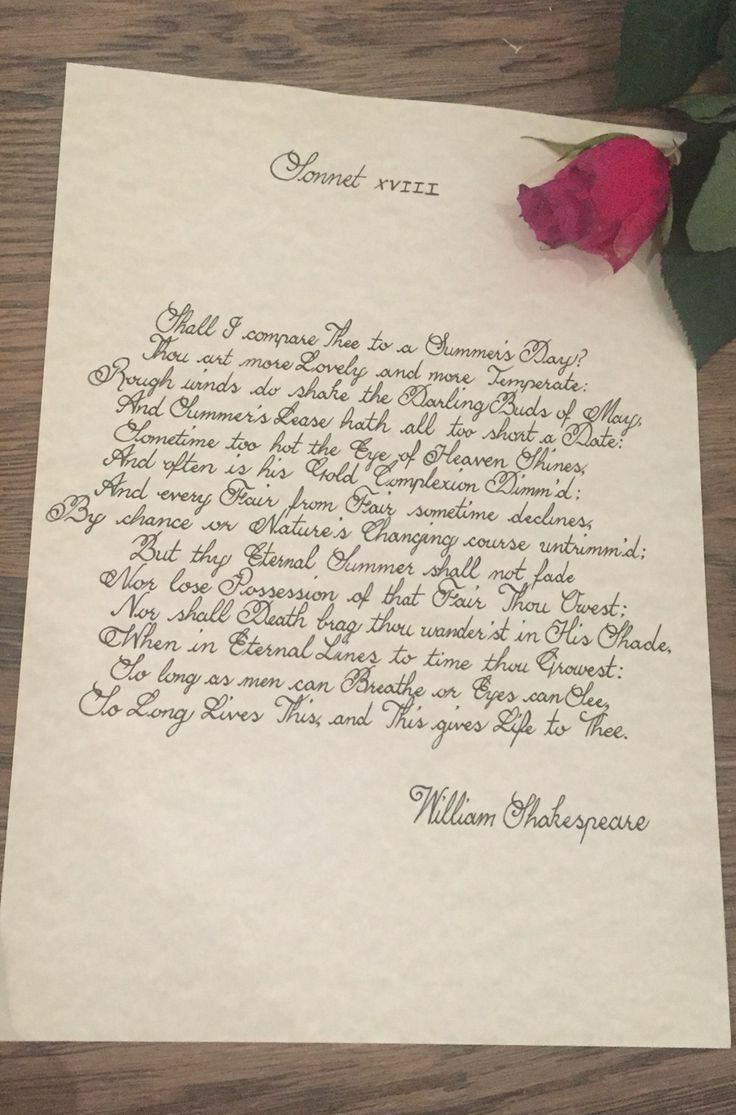 Sonnet XVIII
Shall I compare Thee to a Summer's Day?
Thou art more Lovely and more Temperate:
Rough winds do shake the Darling Buds of May,
And Summer's Lease hath all too short a Date:
Sometime too hot the Eye of Heaven Shines,
And often is his Gold Complexion Dimm'd;
And every Fair from Fair sometime declines,
By chance or Nature's Changing course untrimm'd;
But thy Eternal Summer shall not fade
Nor lose Possession of that Fair Thou Owest;
Nor shall Death brag thou wander'st in His Shade,
When in Eternal Lines to time thou Growest:
So long as men can Breathe or Eyes can See,
So Long Lives This, and This gives Life to Thee.
William Shakespeare